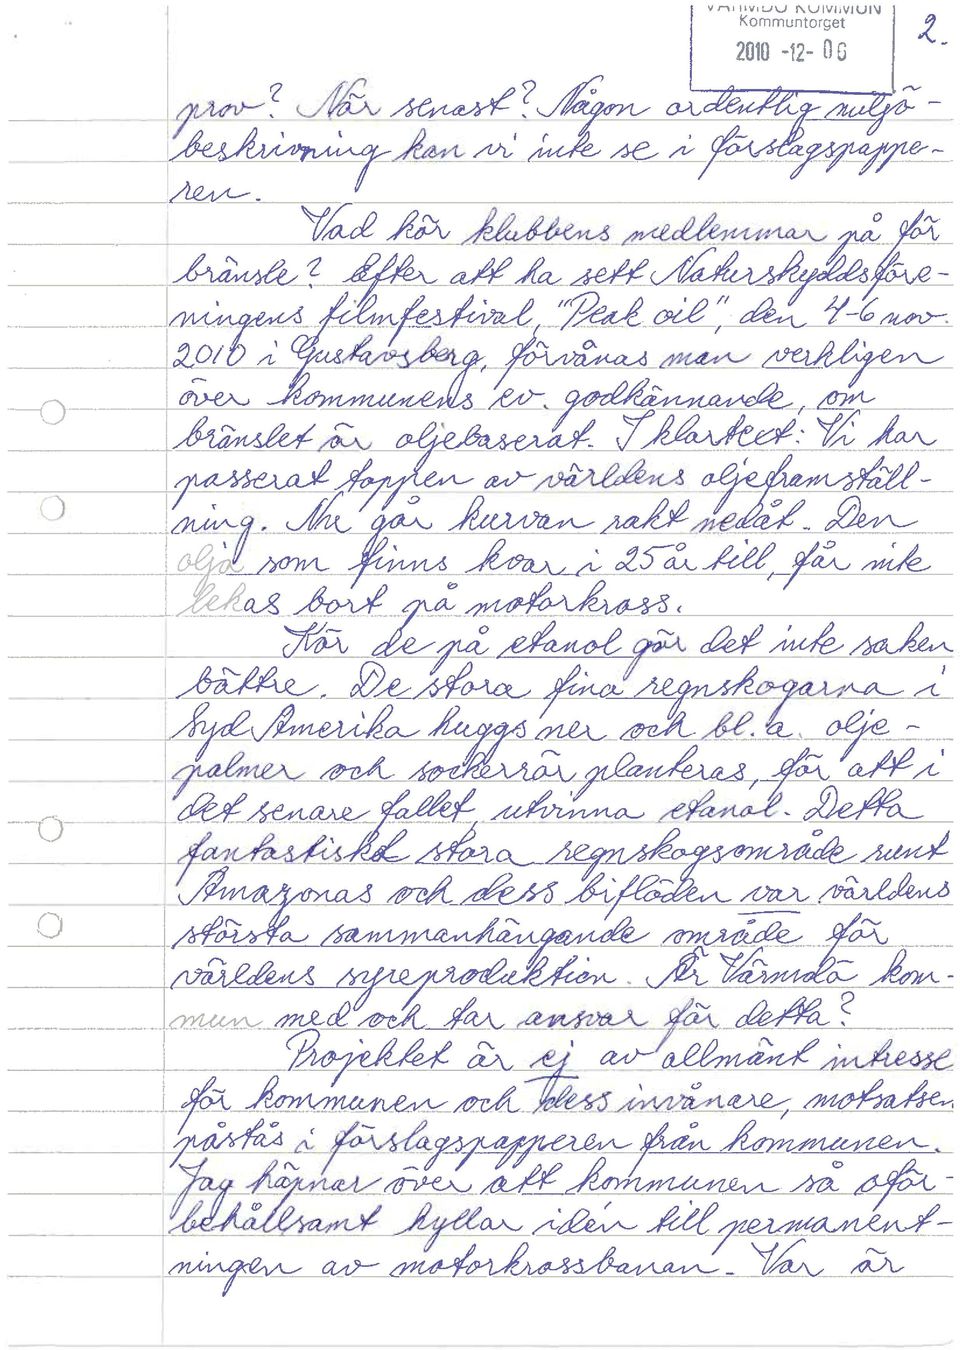 VÄRMDÖ KOMMUN
Kommuntorget
2010 -12- 06
2.
prov? När senast? Någon ordentlig miljö-
beskrivning kan vi inte se i förslagspappe-
ren.
Vad kör klubbens medlemmar på för
bränsle? Efter att ha sett Naturskyddsföre-
ningens filmfestival, "Peak oil", den 4-6 nov.
2010 i Gustavsberg, förvånas man verkligen
över kommunens ev. godkännande, om
bränslet är oljebaserat. I klartext: Vi har
passerat toppen av världens oljeframställ-
ning. Nu går kurvan rakt nedåt. Den
olja som finns kvar i 25 år till, får inte
lekas bort på motorkross.
Kör de på etanol gör det inte saken
bättre. De stora fina regnskogarna i
Syd Amerika huggs ner och bl.a. olje-
palmer och sockerrör planteras, för att i
det senare fallet, utvinna etanol. Detta
fantastiskt stora regnskogsområde runt
Amazonas och dess bifloden var världens
största sammanhängande område för
världens syreproduktion. Är Värmdö kom-
mun med och tar ansvar för detta?
Projektet är ej av allmänt intresse
för kommunen och dess invånare, motsatsen
påstås i förslagspapperen från kommunen.
Jag häpnar över att kommunen så oför-
behållsamt hyllar idén till permanent-
ningen av motorkrossbanan. Var är